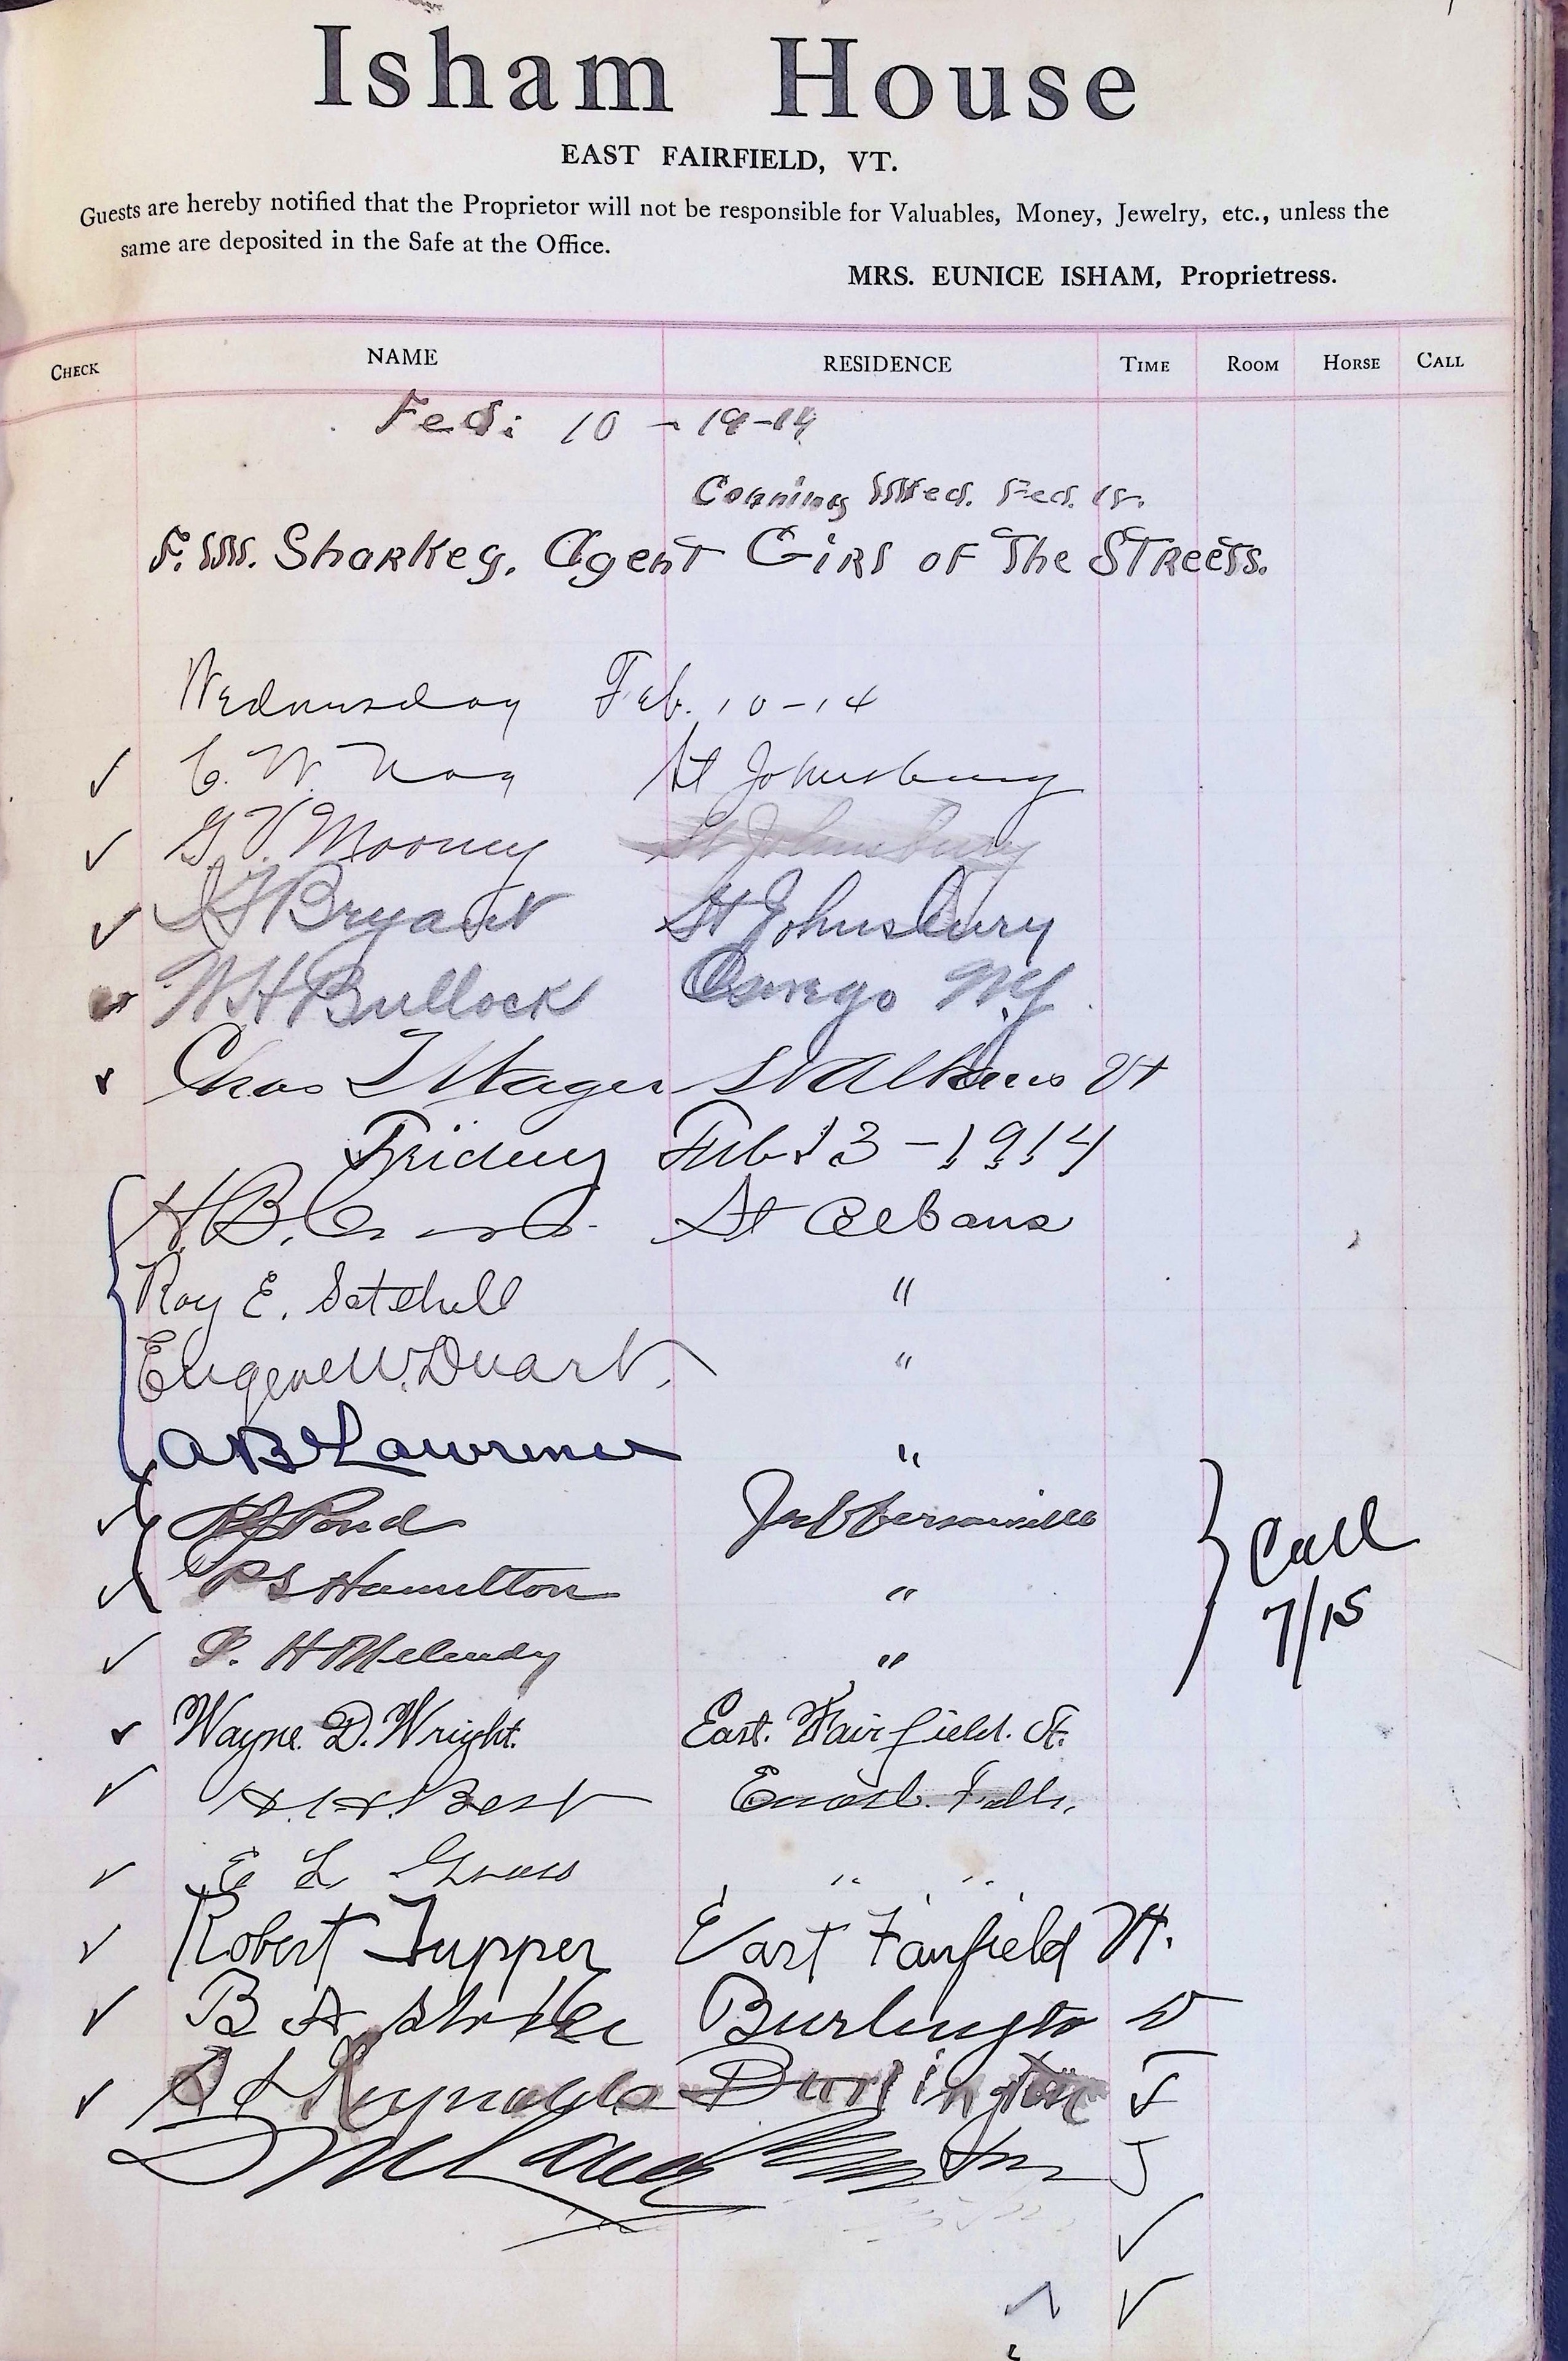 Isham House
EAST FAIRFIELD, VT.
Guests are hereby notified that the Proprietor will not be responsible for Valuables, Money, Jewelry, etc., unless the
same are deposited in the Safe at the Office.
MRS. EUNICE ISHAM, Proprietress.
CHECK NAME RESIDENCE TIME ROOM HORSE CALL
Feb: 10 - 19-14
Coming Wed. Feb. 18.
F.W. Sharkey. Agent Girl of The Streets.
Wednesday Feb. 10-14
C. W. St Johnsbury
G. V. Mooney St Johnsbury
Bryant St Johnsbury
W H Bullock Oswego N.Y.
Chas St Albans Vt
Friday Feb 13 - 1914
H. B. St Albans
Roy E. Satchell "
Eugene W. Duart. "
A B Lawrence "
Pond Jeffersonville
P S Hamilton " Call
7/15
P. H Melendy "
Wayne. D. Wright. East. Fairfield. Vt.
H. Best Enosb. Falls.
E L Gross " "
Robert Tupper East Fairfield Vt.
B A Burlington Vt
Reynolds Burlington